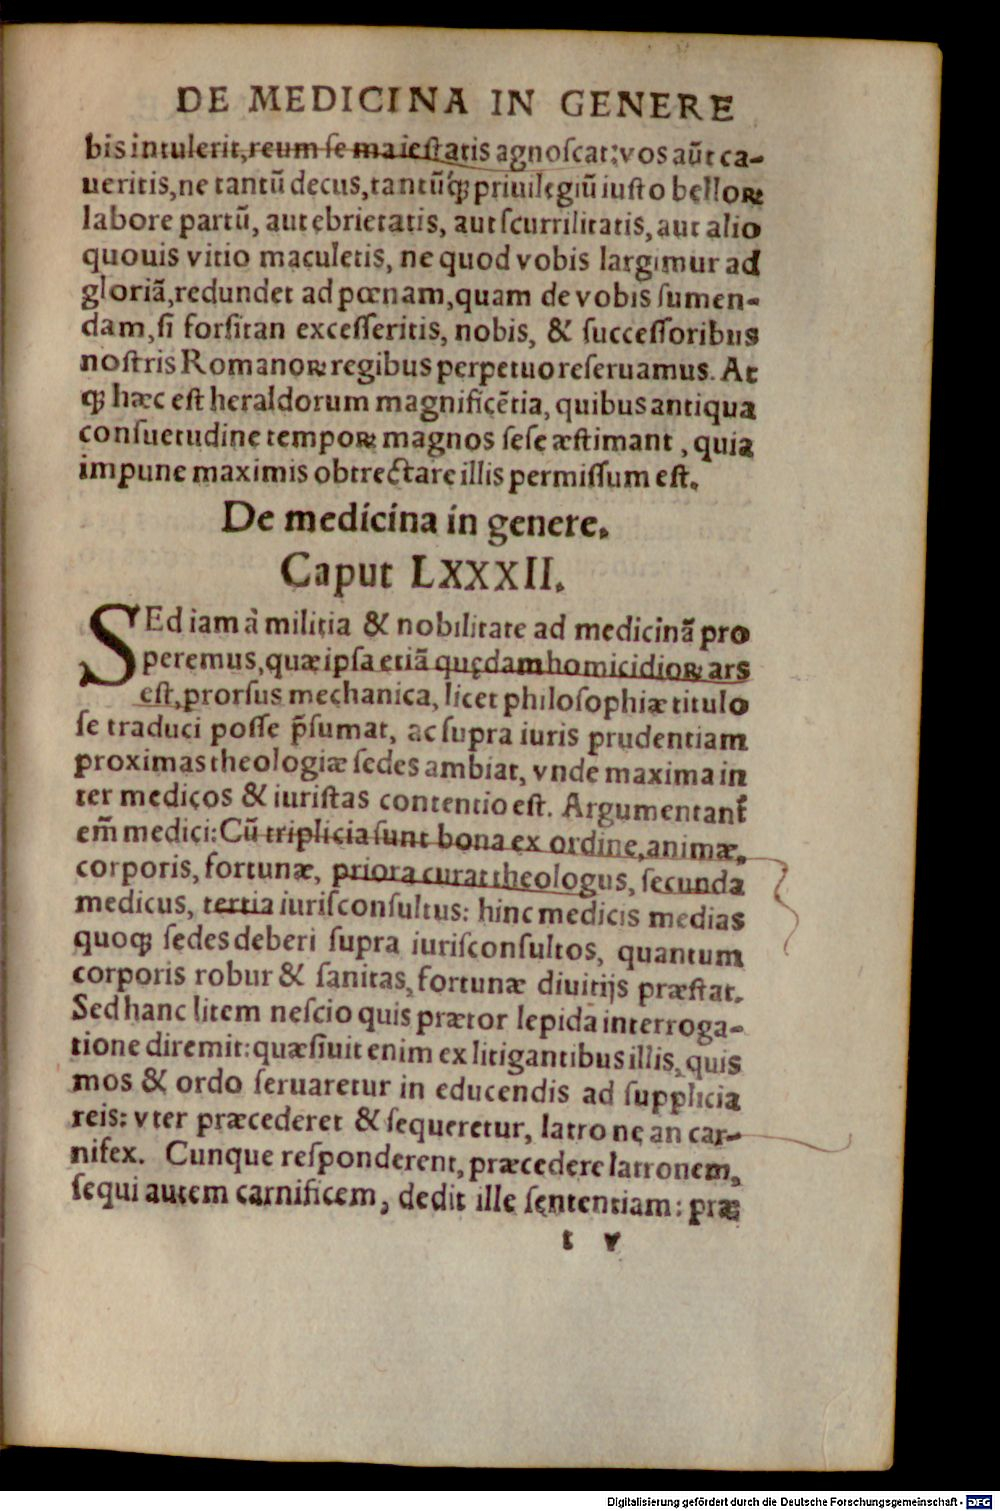 DE MEDICINA IN GENERE
bis intulerit, reum se maiestatis agnoscat: vos aūt ca-
ueritis, ne tantū decus, tantūq́ꝫ priuilegiū iusto belloꝝ
labore partū, aut ebrietatis, aut scurrilitatis, aut alio
quouis vitio maculetis, ne quod vobis largimur ad
gloriā, redundet ad pœnam, quam de vobis sumen-
dam, si forsitan excesseritis, nobis, & successoribus
nostris Romanoꝝ regibus perpetuo reseruamus. At
qꝫ hæc est heraldorum magnificētia, quibus antiqua
consuetudine tempoꝝ magnos sese æstimant, quia
impune maximis obtrectare illis permissum est.
De medicina in genere.
Caput LXXXII.
SEd iam à militia & nobilitate ad medicinā pro
peremus, quæ ipsa etiā quędam homicidioꝝ ars
est, prorsus mechanica, licet philosophiæ titulo
se traduci posse p̄sumat, ac supra iuris prudentiam
proximas theologiæ sedes ambiat, vnde maxima in
ter medicos & iuristas contentio est. Argumentant᷑
em̄ medici: Cū triplicia sunt bona ex ordine, animæ,
corporis, fortunæ, priora curat theologus, secunda
medicus, tertia iurisconsultus: hinc medicis medias
quoqꝫ sedes deberi supra iurisconsultos, quantum
corporis robur & sanitas, fortunæ diuitijs præstat.
Sed hanc litem nescio quis prætor lepida interroga-
tione diremit: quæsiuit enim ex litigantibus illis, quis
mos & ordo seruaretur in educendis ad supplicia
reis: vter præcederet & sequeretur, latro ne an car-
nifex. Cunque responderent, præcedere latronem,
sequi autem carnificem, dedit ille sententiam: præ
t v
Digitalisierung gefördert durch die Deutsche Forschungsgemeinschaft - DFG